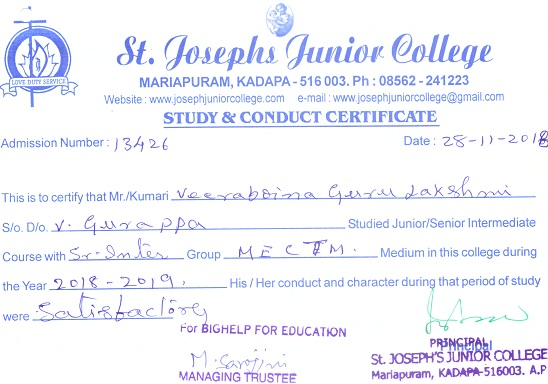 LOVE DUTY SERVICE
St. Josephs Junior College
MARIAPURAM, KADAPA - 516 003. Ph : 08562 - 241223
Website : www.josephjuniorcollege.com e-mail : www.josephjuniorcollege@gmail.com
STUDY & CONDUCT CERTIFICATE
Admission Number : 13426 Date : 28-11-2018
This is to certify that Mr./Kumari Veeraboina Guru Lakshmi
S/o. D/o. V. Gurappa Studied Junior/Senior Intermediate
Course with Sr. Inter Group M E C T.M. Medium in this college during
the Year 2018-2019. His / Her conduct and character during that period of study
were Satisfactory
For BIGHELP FOR EDUCATION
M. Sarojini
MANAGING TRUSTEE
PRINCIPAL
Principal
St. JOSEPH'S JUNIOR COLLEGE
Mariapuram, KADAPA-516003. A.P